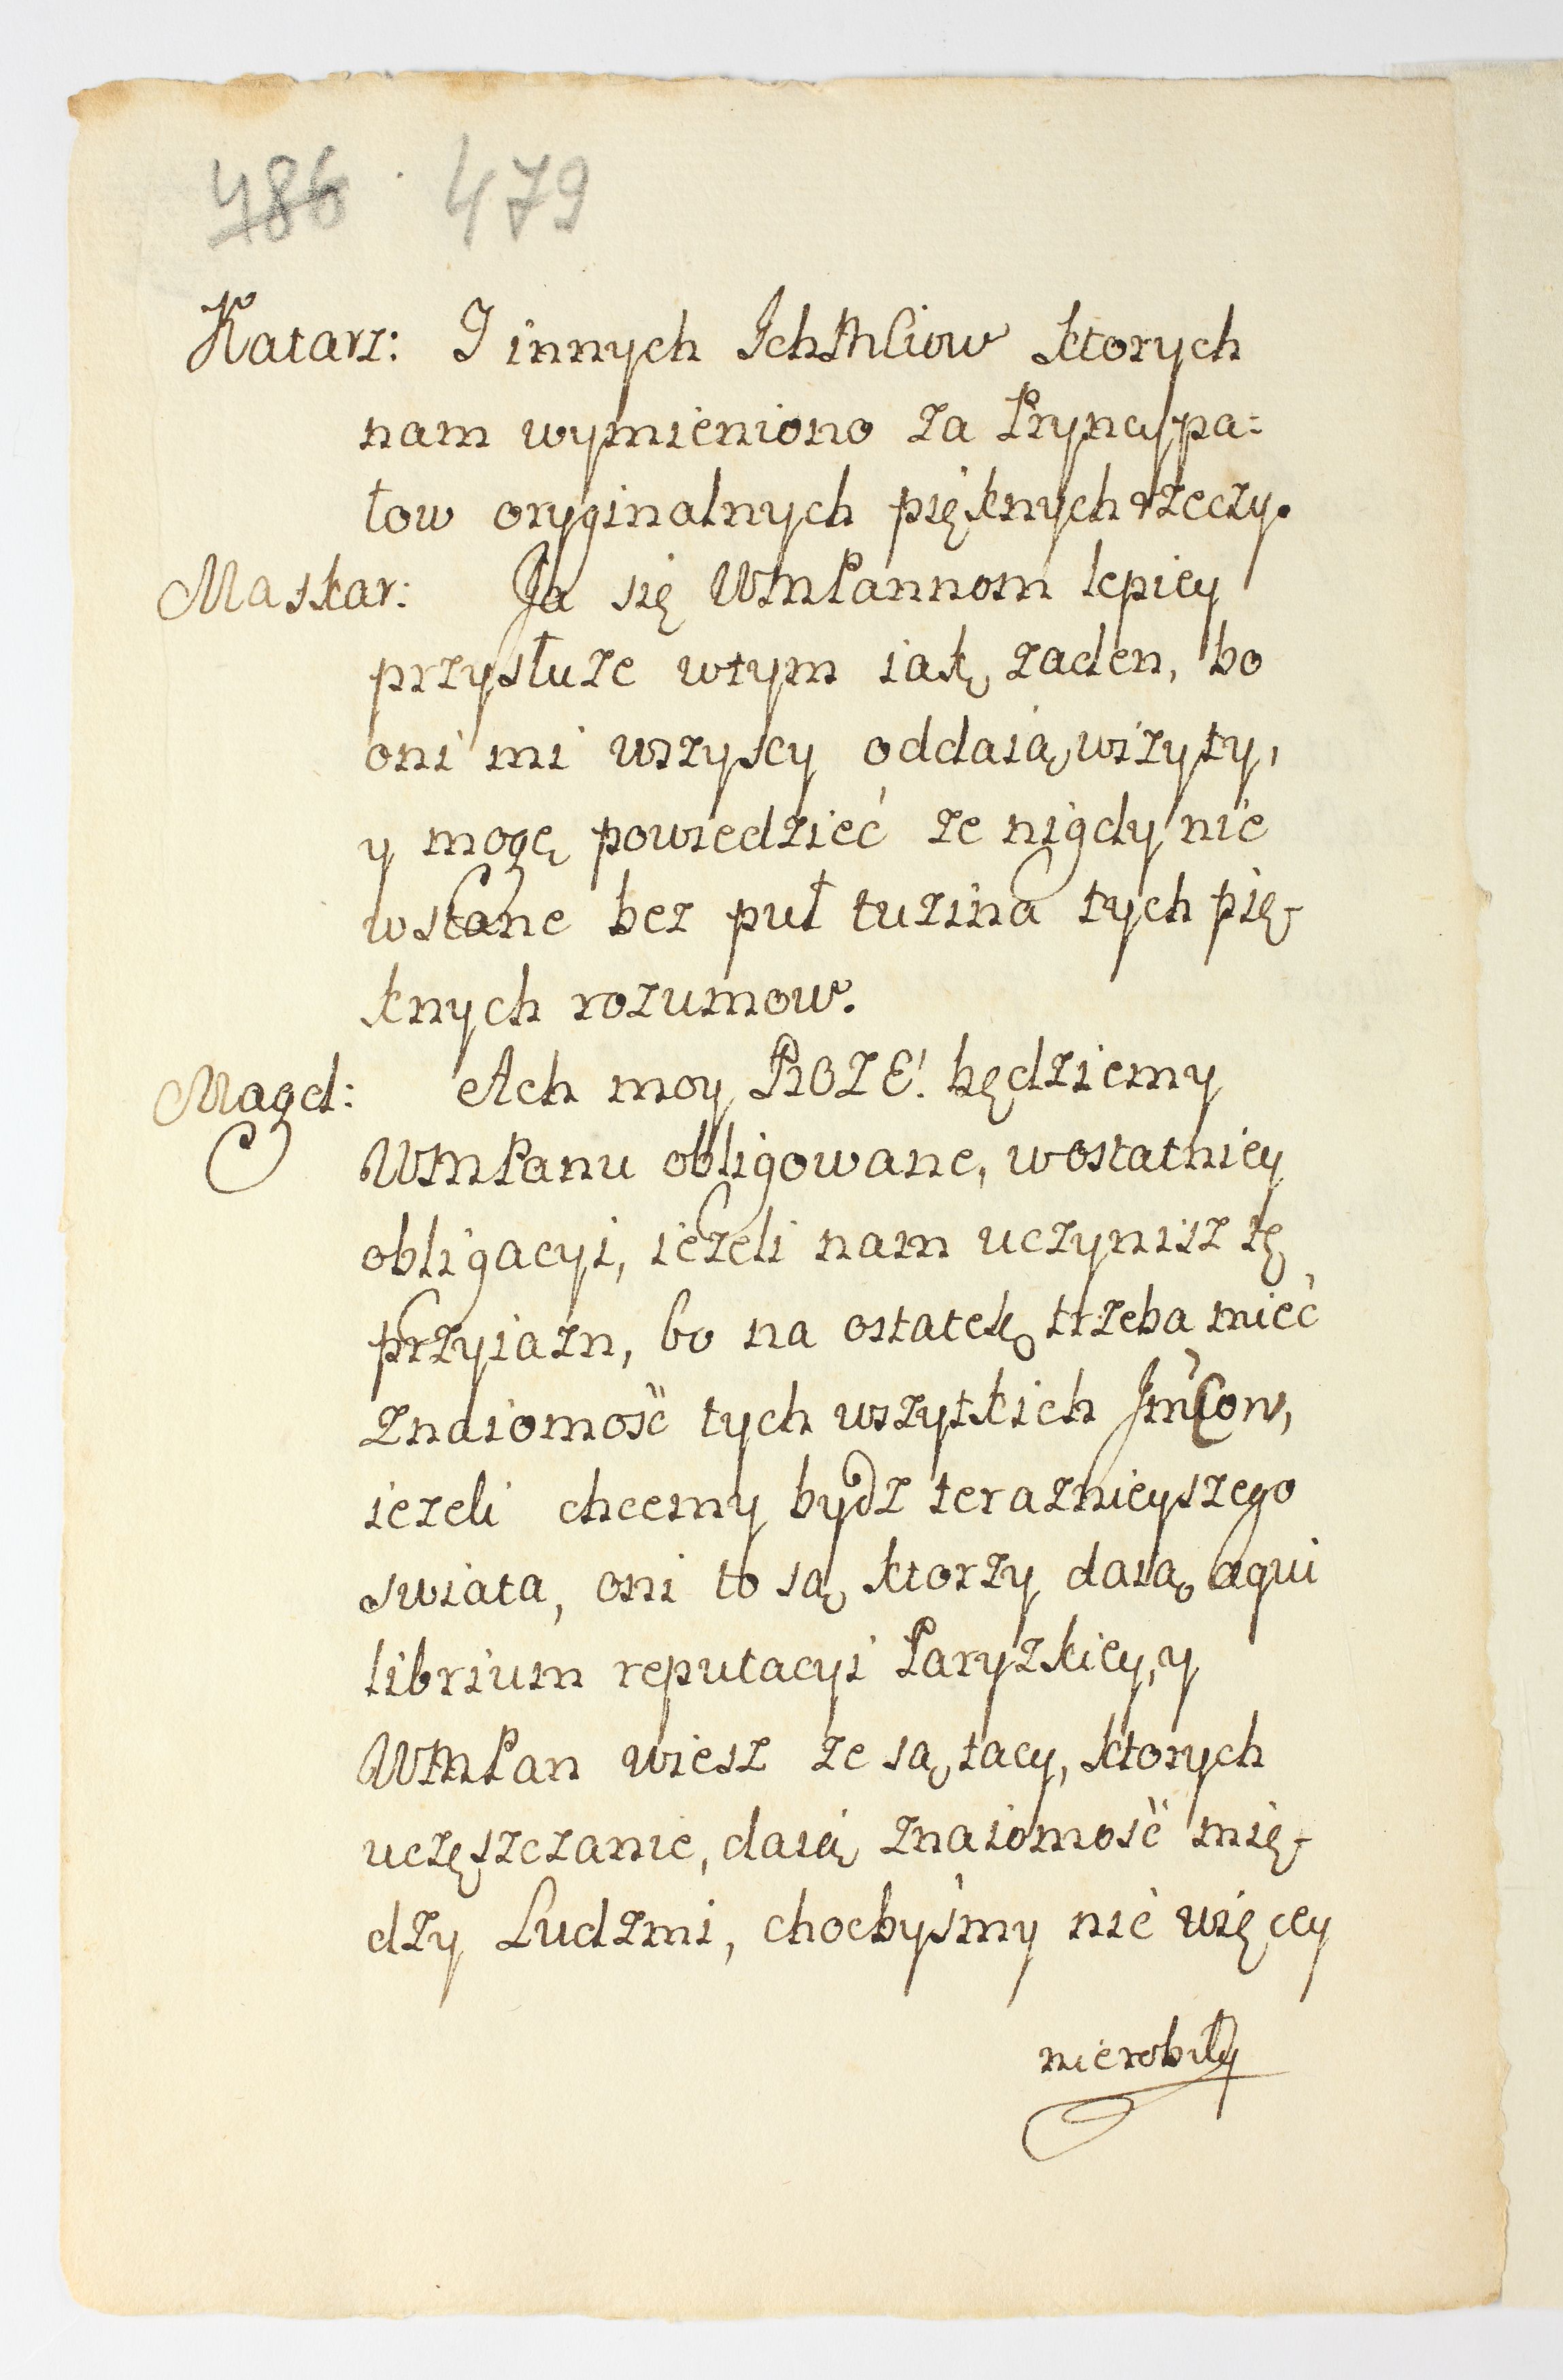 486 . 479
Katarz: I innych IchMCiow ktorych
nam wymieniono za Pryncypa:
łow oryginalnych pięknych rzeczy.
Maskar: Ja się WMPannom lepiey
przysłuze wtym iak zaden, bo
oni mi wszyscy oddaią wizyty,
y mogę powiedzieć ze nigdy nie
wstane bez puł tuzina tych pię-
knych rozumow.
Magd: Ach moy BOZE! będziemy
WMPanu obligowane, wostatniey
obligacyi, iezeli nam uczynisz tę
przyiazn, bo na ostatek trzeba mieć
znaiomość tych wszytkich JmCow,
iezeli chcemy bydz teraznieyszego
swiata, oni to są ktorzy daią æqui
librium reputacyi Paryzkiey, y
WMPan wiesz ze są tacy, ktorych
uczęszczanie, daią znaiomość mię-
dzy Ludzmi, chocbyśmy nic więcey
nierobiły